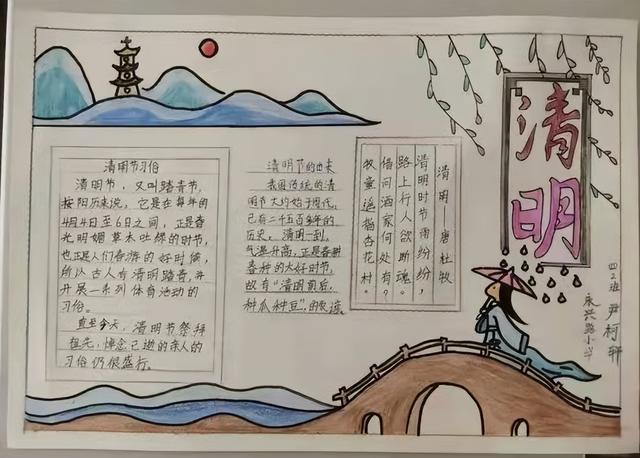 清明
清明节习俗
清明节，又叫踏青节，
按阳历来说，它是在每年的
4月4日至6日之间，正是春
光明媚草木吐绿的时节，
也正是人们春游的好时候，
所以古人有清明踏青，并
开展一系列体育活动的
习俗。
直至今天，清明节祭拜
祖先，悼念已逝的亲人的
习俗仍很盛行。
清明节的由来
我国传统的清
明节大约始于周代，
已有二千五百多年的
历史，清明一到，
气温升高，正是春耕
春种的大好时节，
故有“清明前后，
种瓜种豆”的农谚。
清明——唐 杜牧
清明时节雨纷纷，
路上行人欲断魂。
借问酒家何处有？
牧童遥指杏花村。
四2班 尹柯轩
永兴路小学